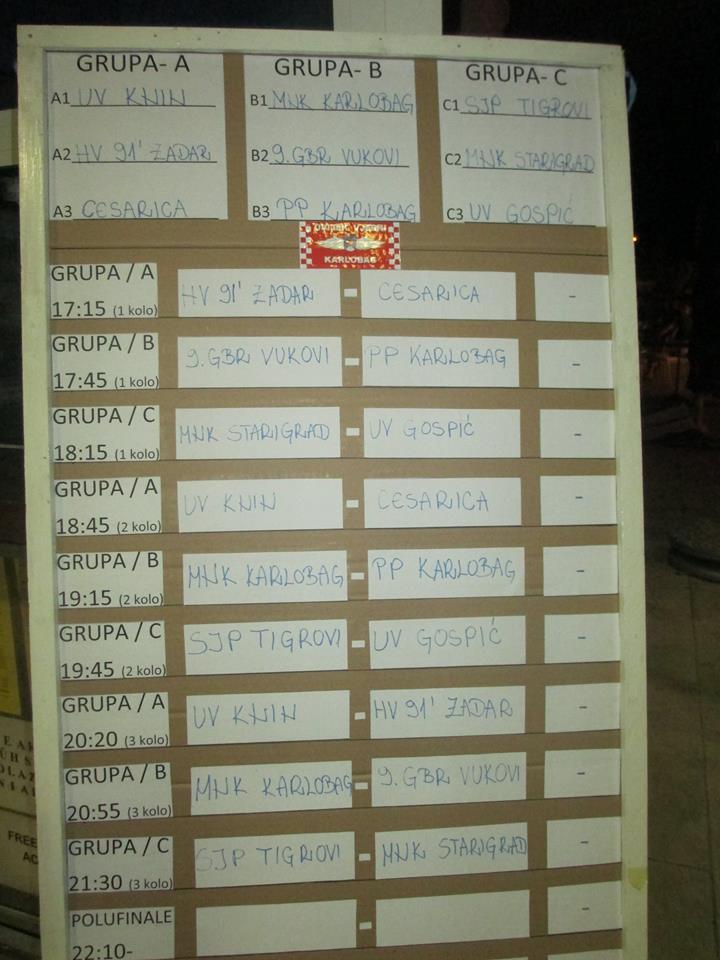 GRUPA- A
A1 UV KNIN
A2 HV 91' ZADAR
A3 CESARICA
GRUPA- B
B1 MNK KARLOBAG
B2 9.GBR VUKOVI
B3 PP KARLOBAG
GRUPA- C
C1 SJP TIGROVI
C2 MNK STARIGRAD
C3 UV GOSPIĆ
KARLOBAG
GRUPA / A
17:15 (1 kolo) HV 91' ZADAR - CESARICA -
GRUPA / B
17:45 (1 kolo) 9.GBR VUKOVI - PP KARLOBAG -
GRUPA / C
18:15 (1 kolo) MNK STARIGRAD - UV GOSPIĆ -
GRUPA / A
18:45 (2 kolo) UV KNIN - CESARICA -
GRUPA / B
19:15 (2 kolo) MNK KARLOBAG - PP KARLOBAG -
GRUPA / C
19:45 (2 kolo) SJP TIGROVI - UV GOSPIĆ -
GRUPA / A
20:20 (3 kolo) UV KNIN - HV 91' ZADAR -
GRUPA / B
20:55 (3 kolo) MNK KARLOBAG - 9.GBR VUKOVI -
GRUPA / C
21:30 (3 kolo) SJP TIGROVI - MNK STARIGRAD -
POLUFINALE - -
22:10-
FREE